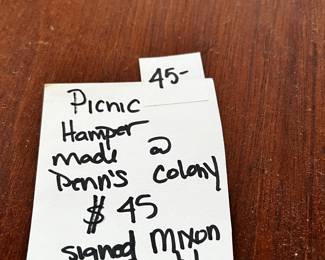 45-
Picnic
Hamper
made @
Penn's Colony
$ 45
signed Mixon